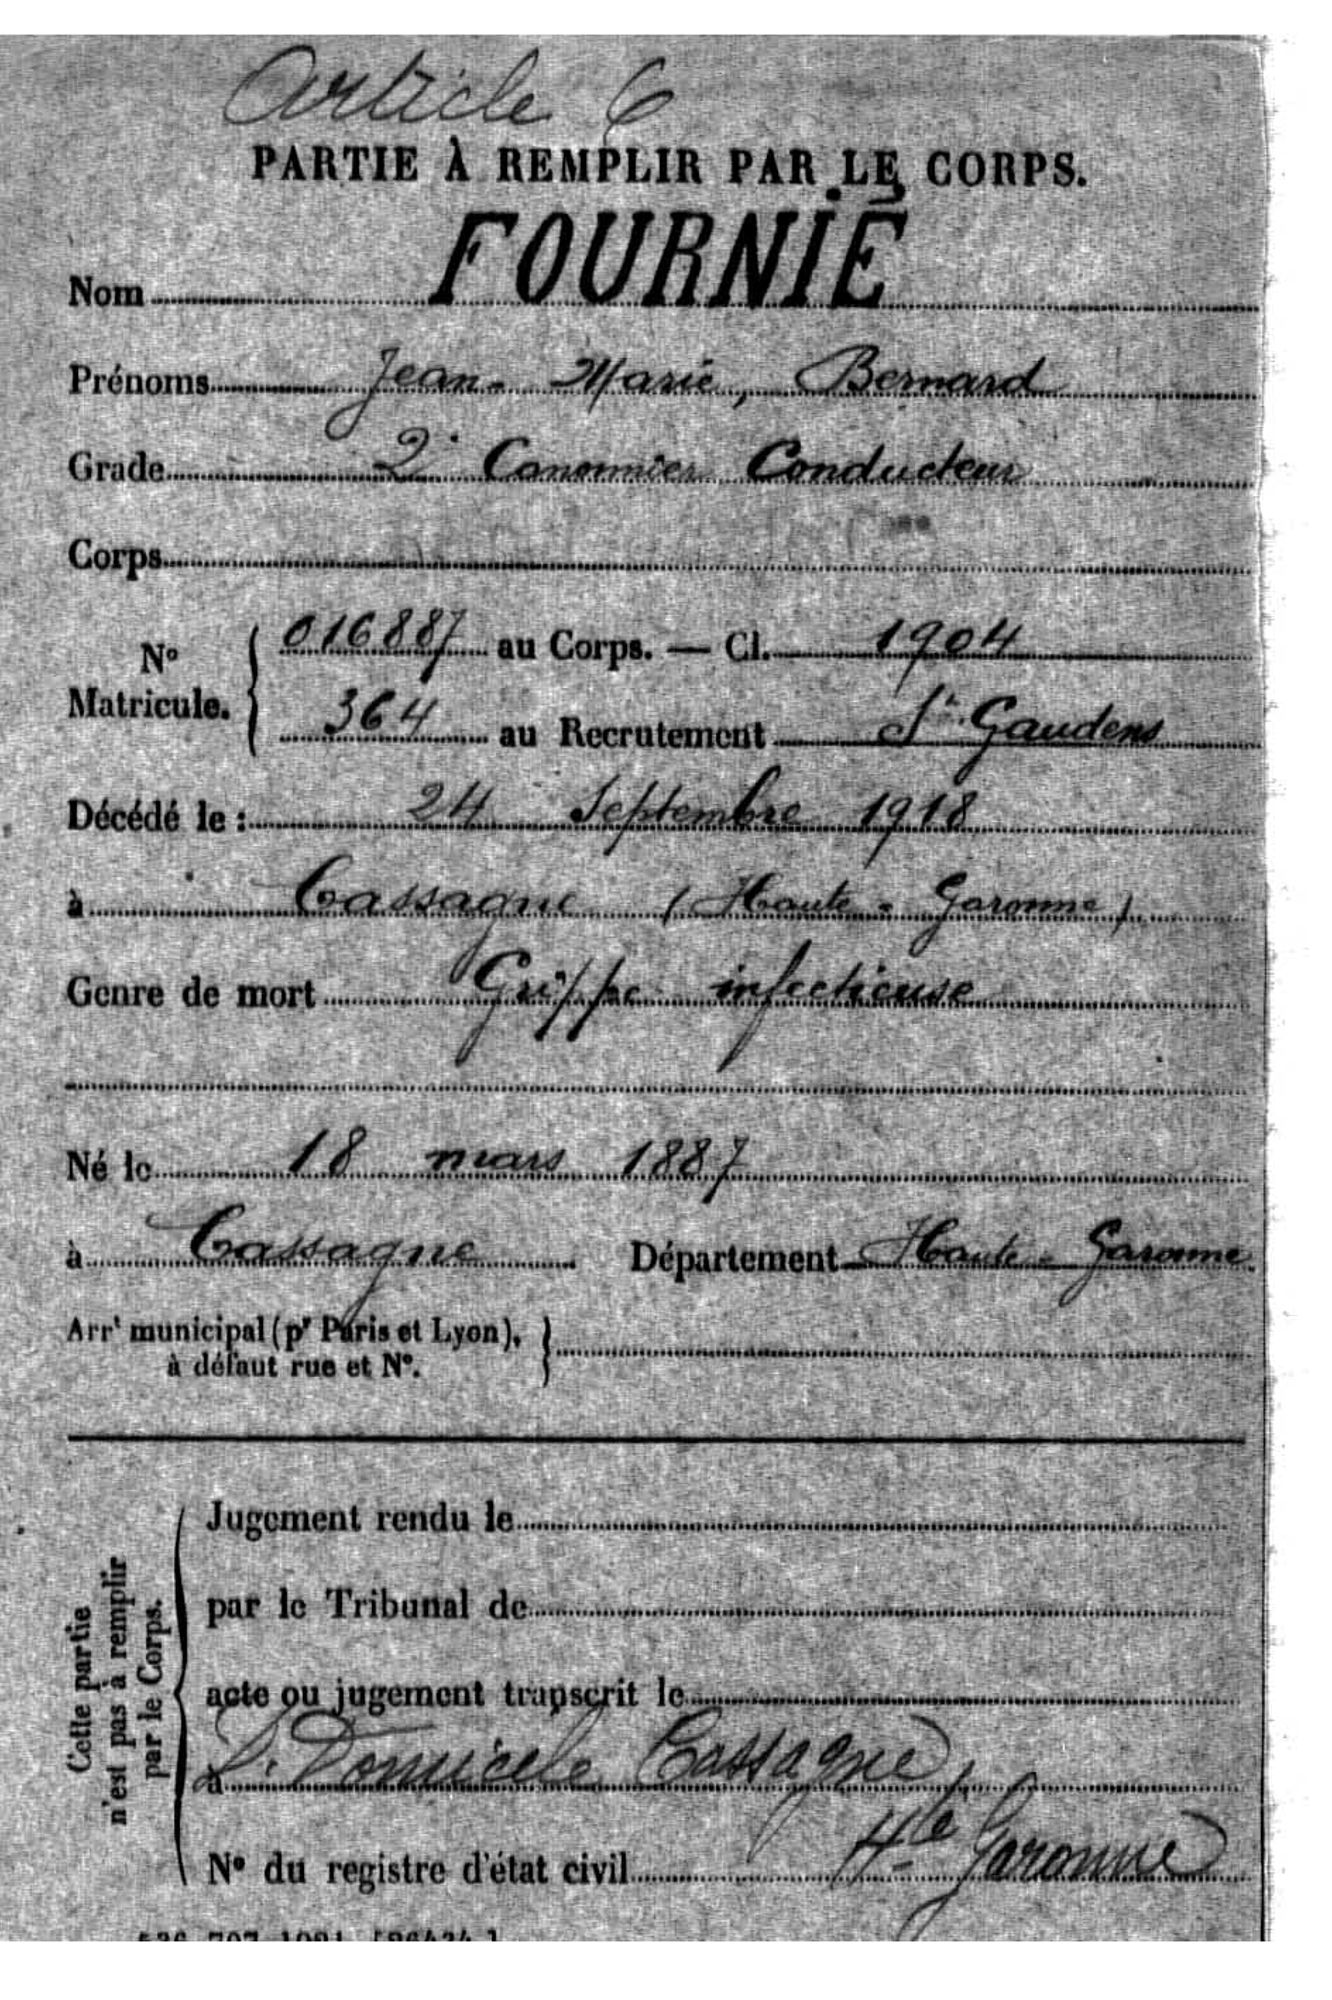 Article 6
PARTIE À REMPLIR PAR LE CORPS.
Nom FOURNIÉ
Prénoms Jean-Marie, Bernard
Grade 2e Canonnier Conducteur
Corps
No Matricule. 016887 au Corps. — Cl. 1904
364 au Recrutement St. Gaudens
Décédé le : 24 Septembre 1918
à Cassagne (Haute-Garonne)
Genre de mort Grippe infectieuse
Né le 18 mars 1887
à Cassagne Département Haute-Garonne
Arrt municipal (pr Paris et Lyon),
à défaut rue et No.
Cette partie
n'est pas à remplir
par le Corps.
Jugement rendu le
par le Tribunal de
acte ou jugement transcrit le
à D. Domicile Cassagne
Hte Garonne
No du registre d'état civil